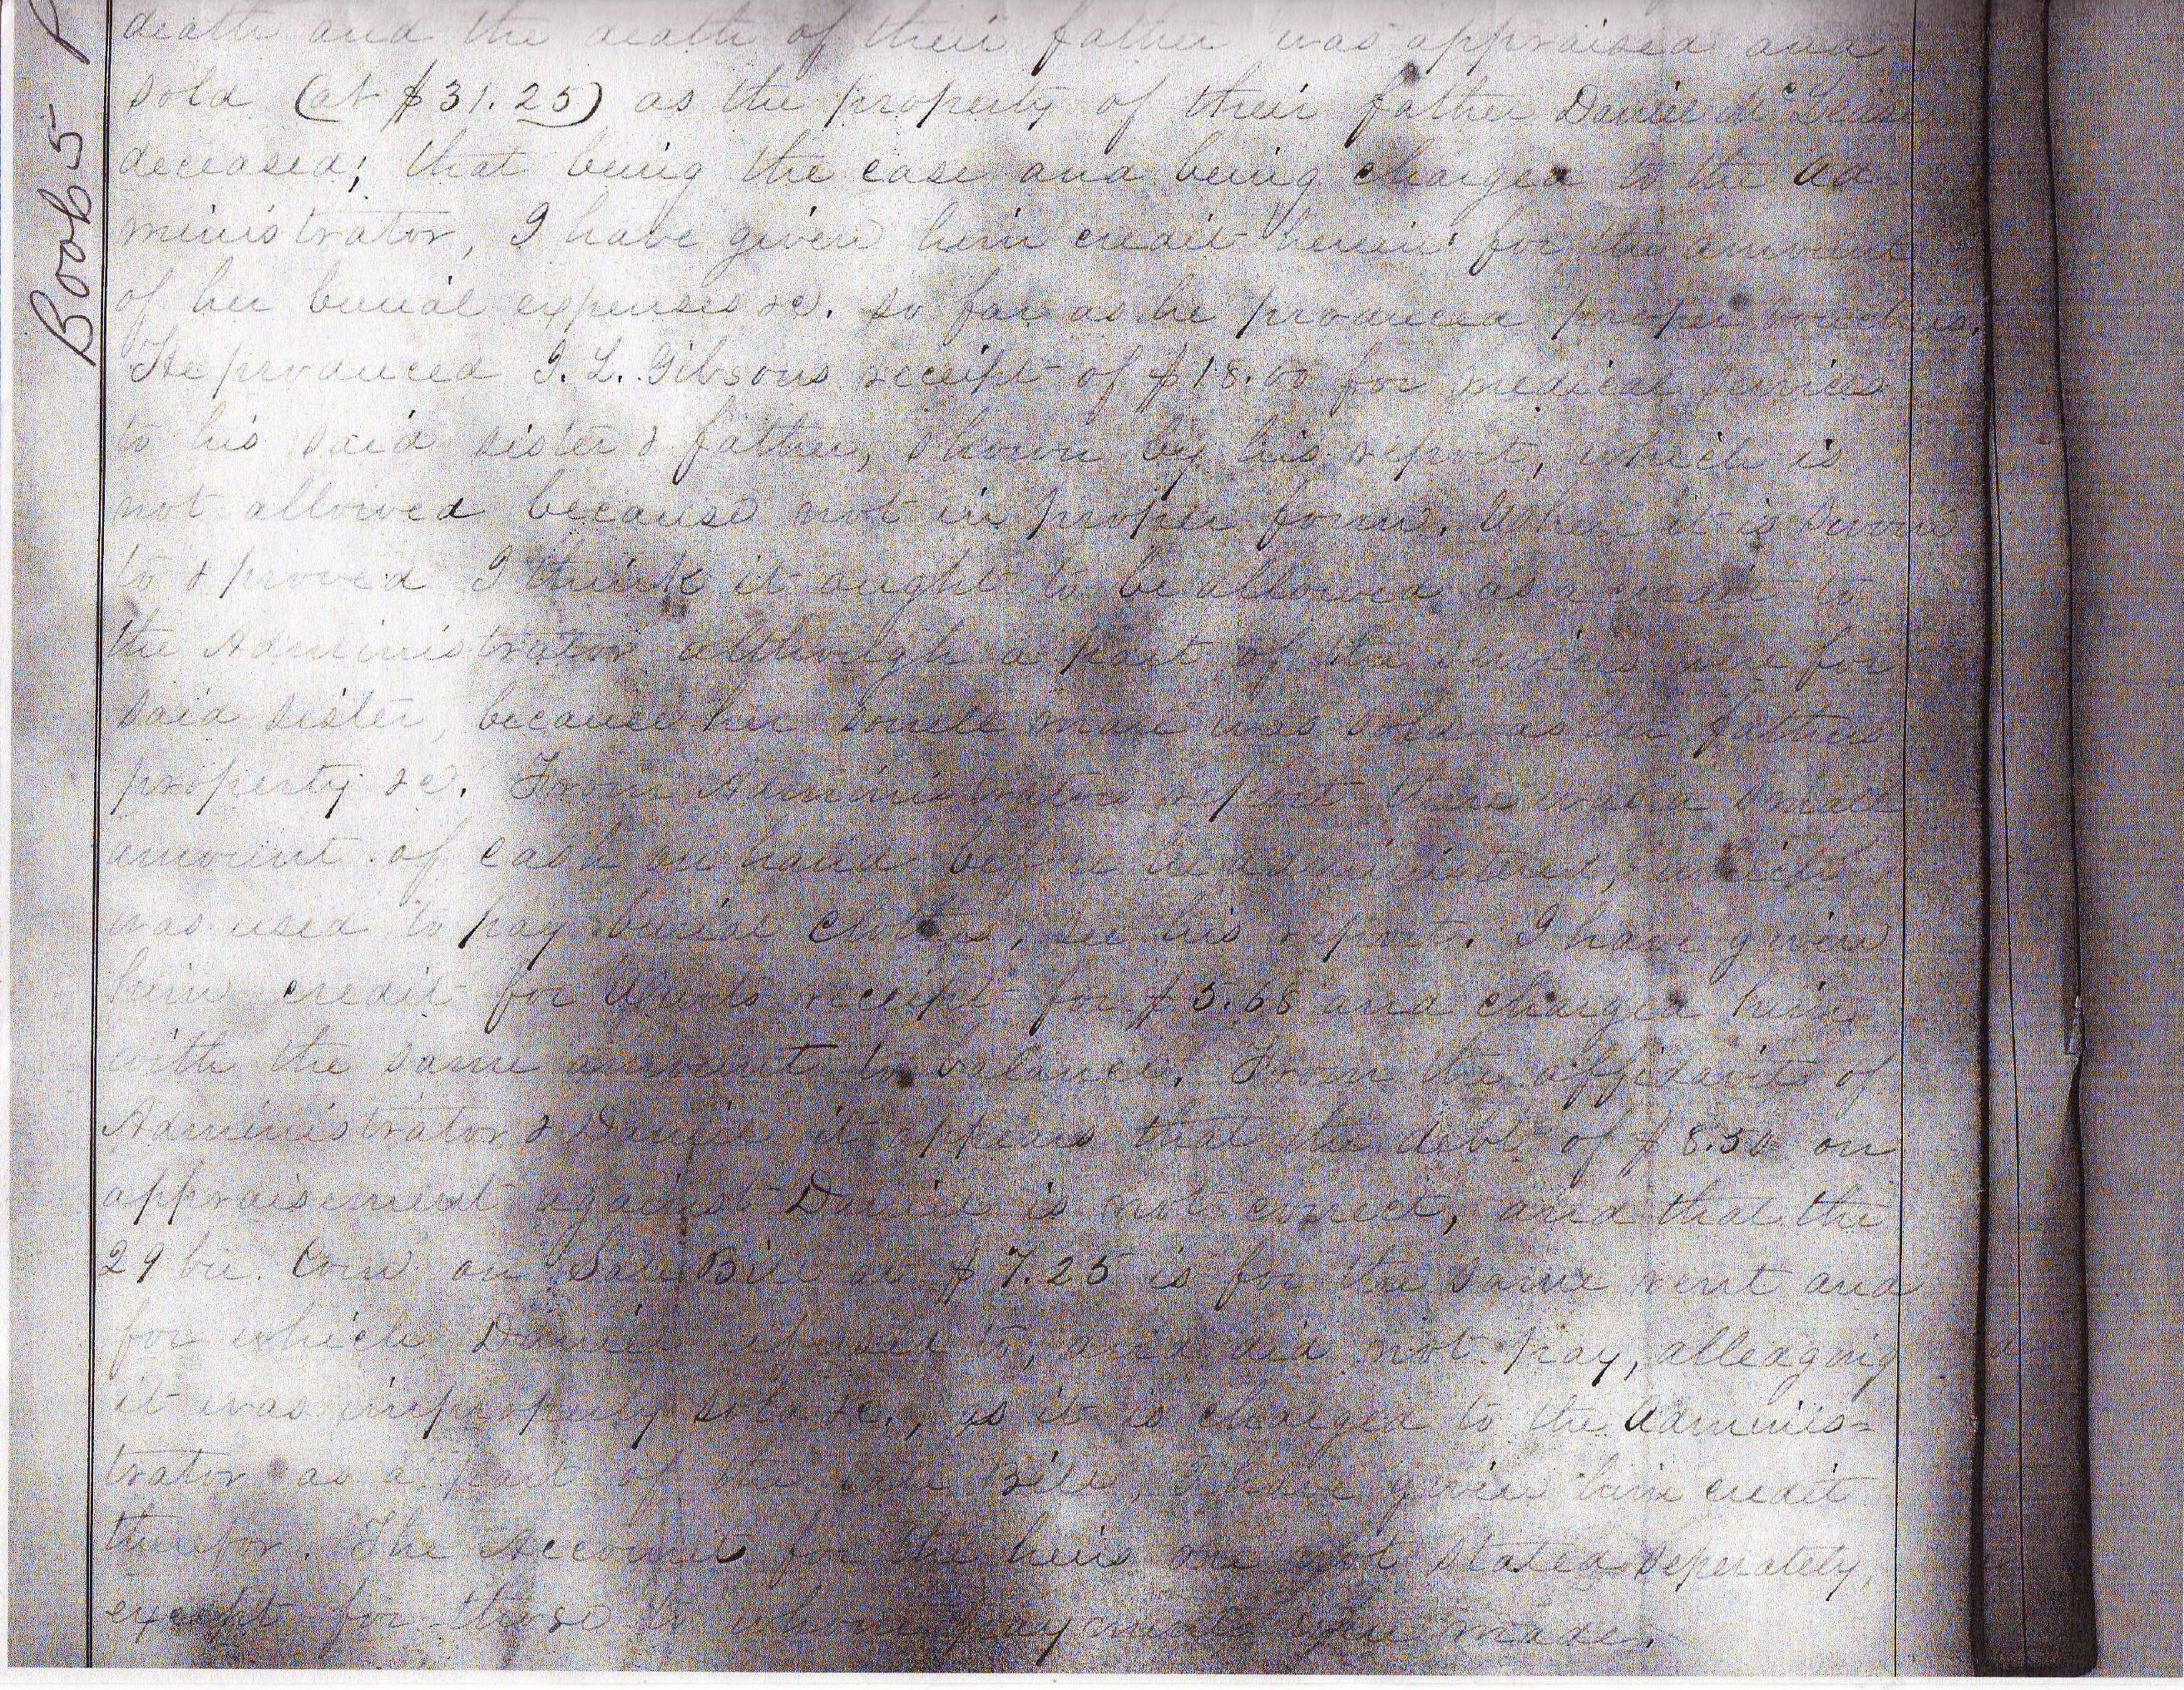 Book 5 P
death and the death of their father was appraised and
sold (at $31.25) as the property of their father Daniel
deceased; that being the case and being charged to the ad-
ministrator, I have given him credit herein for the amount
of her burial expenses &c. so far as he produced proper vouchers.
He produced I. L. Gibsons receipt of $18.00 for medical services
to his said sister & father, shown by his report, which is
not allowed because not in proper form. When it is sworn
to & proved I think it ought to be allowed as a credit to
the Administrator although a part of the services were for
said sister, because her mare was sold as her fathers
property &c. From Administrators report there was a small
amount of cash on hand before he administered, which
was used to pay burial clothes, see his report. I have given
him credit for receipt for $5.68 and charged him
with the same amount to balance. From the affidavits of
Administrator & Daniel it appears that the debt of $8.50 on
appraisement against Daniel is not correct, and that the
29 bu. Corn on Sale Bill at $7.25 is for the same rent and
for which Daniel refused to, and did not pay, alledging
it was improperly sold &c., as it is charged to the Adminis=
trator as a part of the sale Bill, I have given him credit
therefor. The Accounts for the heirs are not stated seperately,
except for those to whom payments were made.